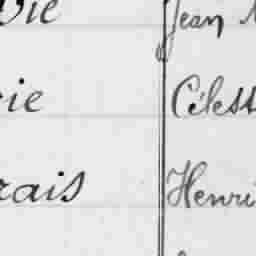 vie Jean
rie Célest
rais Henri